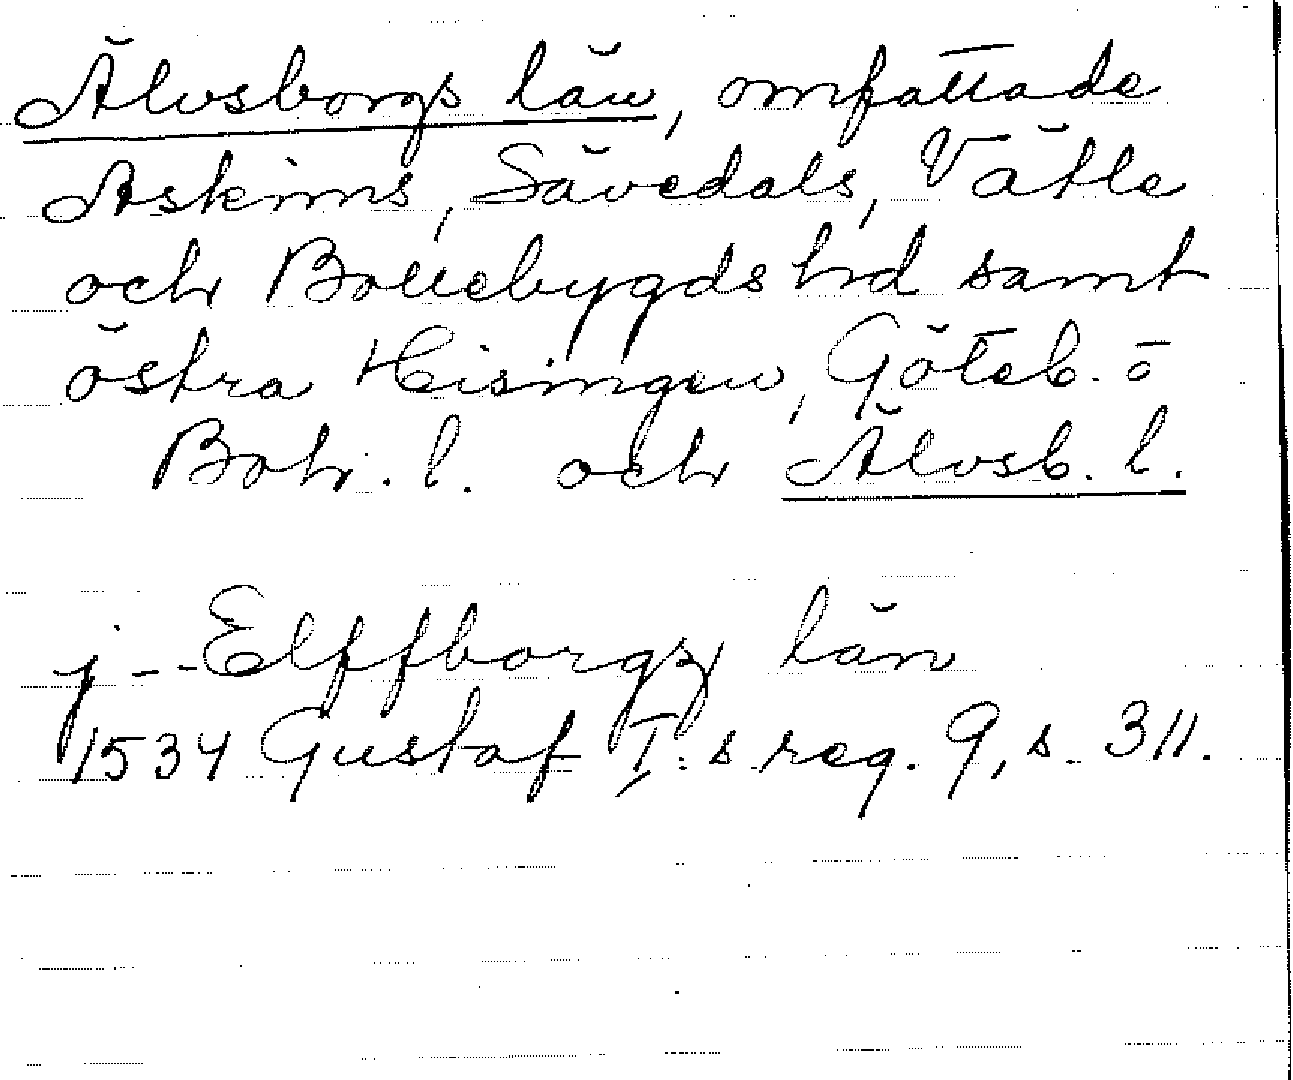 Älvsborgs län, omfattade
Askims, Sävedals, Vättle
och Bollebygds hd samt
östra Hisingen, Göteb. o
Boh. l. och Älvsb. l.
j -- Elffborgx län
1534 Gustaf I:s reg. 9, s. 311.